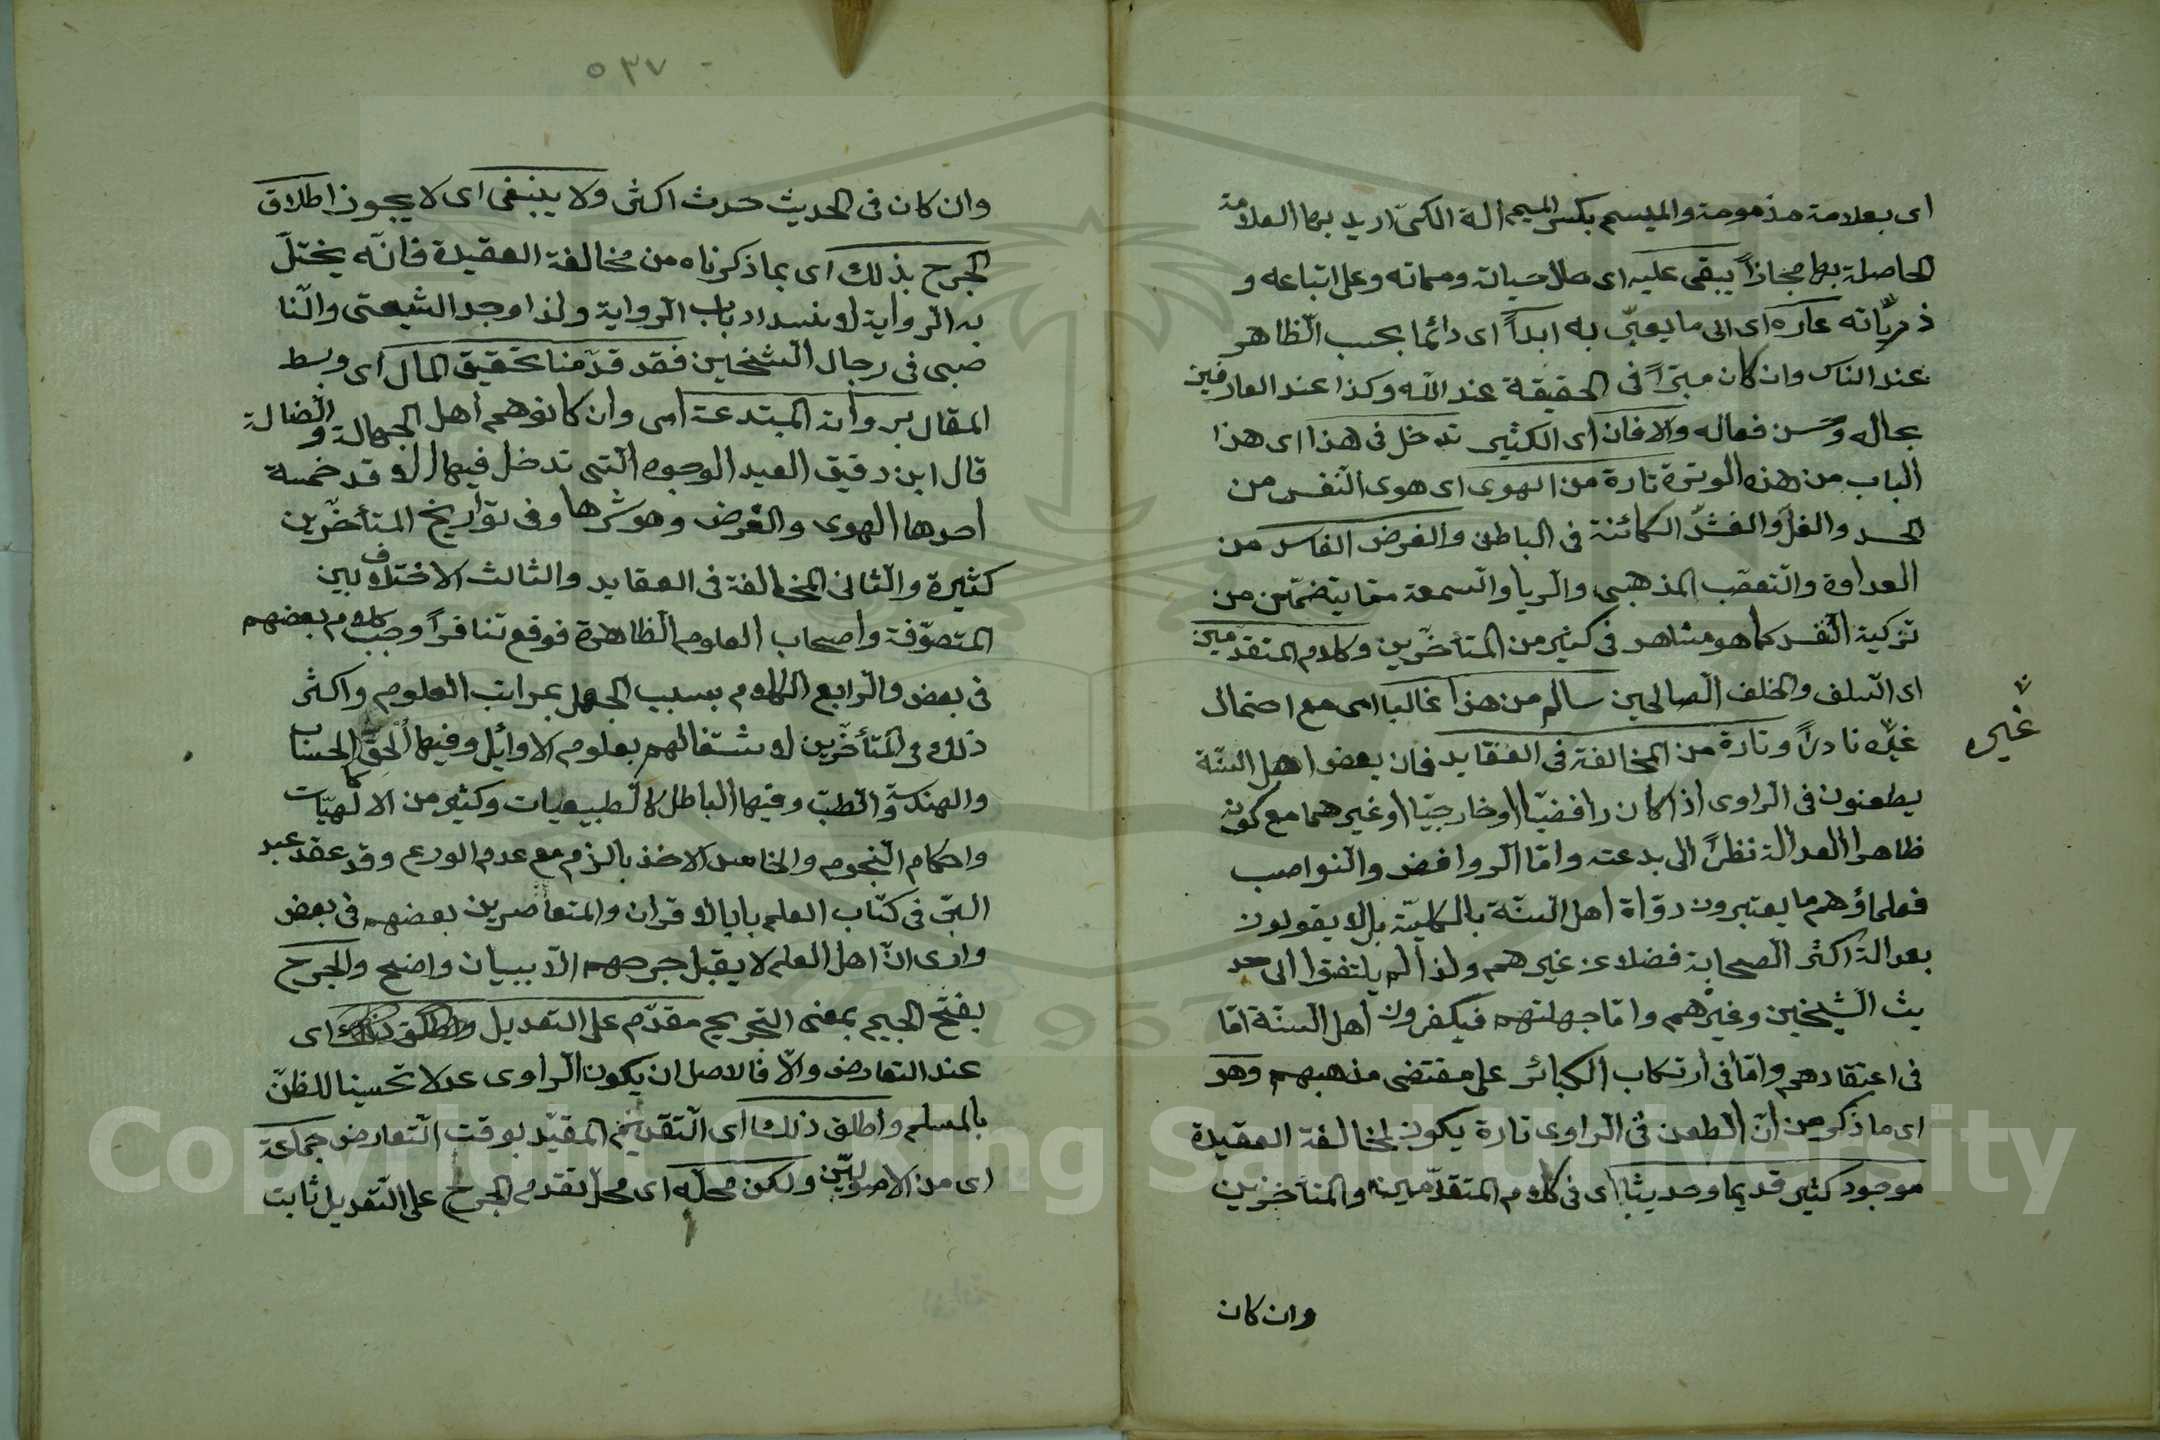 اى بعلامة مذمومة والميسم بكسر الميم الة الكى اريد بها العلامة
الحاصلة بها مجازاً يبقى عليه اى حال حياته ومماته وعلى اتباعه و
ذريّاته عاره اى الى ما يعيّر به ابداً اى دائما بحسب الظاهر
عند الناس وان كان مبرّأ فى الحقيقة عند الله وكذا عند العارفين
بحاله وحسن فعاله والافات اى الكثير تدخل فى هذا اى هذا
الباب من هذه الوترة تارة من الهوى اى هوى النفس من
الحسد والغل والغشّ الكائنة فى الباطن والغرض الفاسد من
العداوة والتعصّب المذهبى والريا والسمعة مما يتضمّن من
تزكية النفس كما هو مشاهد فى كثير من المتأخّرين وكلام المتقدمين
اى السلف والخلف الصالحين سالم من هذا غالبا اى مع احتمال
غيره نادراً وتارة من المخالفة فى العقايد فان بعض اهل السنّة
غيره
يطعنون فى الراوى اذا كان رافضيّا او خارجيّا او غيرهما مع كونه
ظاهر العدالة نظراً الى بدعته واما الروافض والنواصب
فعلماؤهم ما يعتبرون رواة اهل السنّة بالكليّة بل لا يقولون
بعدالة اكثر الصحابة فضلا عن غيرهم ولذا لم يلتفتوا الى حد
يث الشيخين وغيرهم واما جهلتهم فيكفرون اهل السنّة امّا
فى اعتقادهم وامّا فى ارتكاب الكبائر على مقتضى مذهبهم وهو
اى ما ذكر من انّ الطعن فى الراوى تارة يكون لمخالفة العقيدة
موجود كثير قديما وحديثا اى فى كلام المتقدّمين والمتأخرين
وان كان
٥٣٧
وان كان فى الحديث حدث اكثر ولا ينبغى اى لا يجوز اطلاق
الجرح بذلك اى بما ذكرناه من مخالفة العقيدة فانّه يختلّ
به الرواية لانسداد باب الرواية ولذا وجد الشيعى والنا
صبى فى رجال الشيخين فقد قدّمنا تحقيق المال اى وبسط
المقال برواية المبتدعة اى وان كانوهم اهل الجهالة والضالة
قال ابن دقيق العيد الوجوه التى تدخل فيها الافة خمسة
احدها الهوى والغرض وهو شرها وفى تواريخ المتأخّرين
كثيرة والثانى المخالفة فى العقايد والثالث الاختلاف بين
المتصوّفة واصحاب العلوم الظاهرة فوقع تنافراً وجب كلام بعضهم
فى بعض والرابع الكلام بسبب الجهل بمراتب العلوم واكثر
ذلك فى المتأخّرين لاشتغالهم بعلوم الاوائل وفيها الحقّ كالحساب
والهندسة والطبّ وفيها الباطل كالطبيعيات وكثير من الالهيّات
واحكام النجوم والخامس الاخذ بالزم مع عدم الورع وقد عقد عبد
البرّ فى كتاب العلم بابا لاقران والمتعاصرين بعضهم فى بعض
وارى انّ اهل العلم لا يقبل جرحهم الّا ببيان واضح والجرح
بفتح الجيم بمعنى التجريح مقدّم على التعديل اى
عند التعارض والّا فالاصل ان يكون الراوى عدلا تحسينا للظنّ
بالمسلم واطلق ذلك اى التقديم المقيّد بوقت التعارض جماعة
اى من الاصوليّين ولكن محلّه اى محلّ تقدم الجرح على التعديل ثابت
Copyright © King Saud University
1957